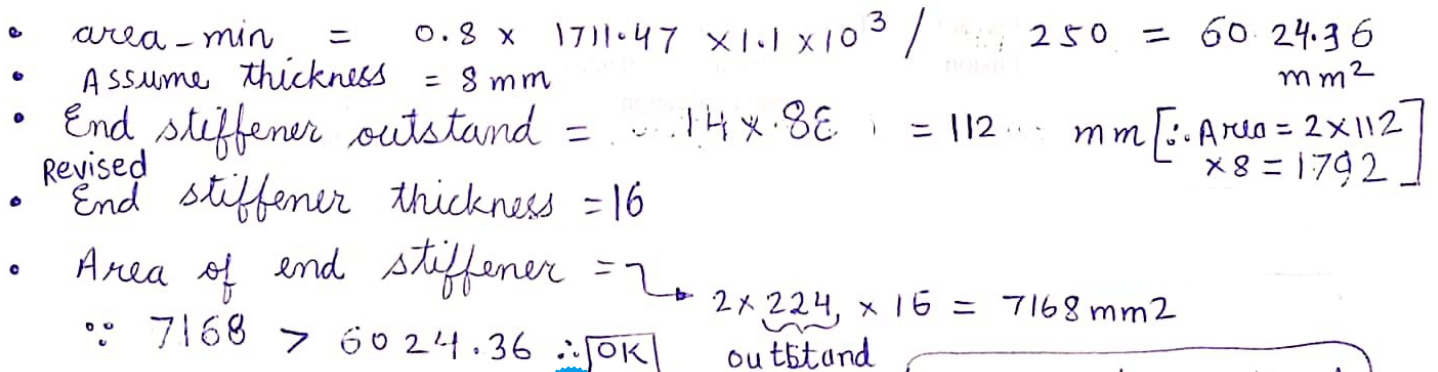 • area-min = 0.8 x 1711.47 x 1.1 x 10³ / 250 = 6024.36 mm²
• Assume thickness = 8 mm
• End stiffener outstand = 14 x 8ε = 112 mm [∴ Area = 2 x 112 x 8 = 1792]
Revised
• End stiffener thickness = 16
• Area of end stiffener =
2 x 224 x 16 = 7168 mm2
∵ 7168 > 6024.36 ∴ OK outstand